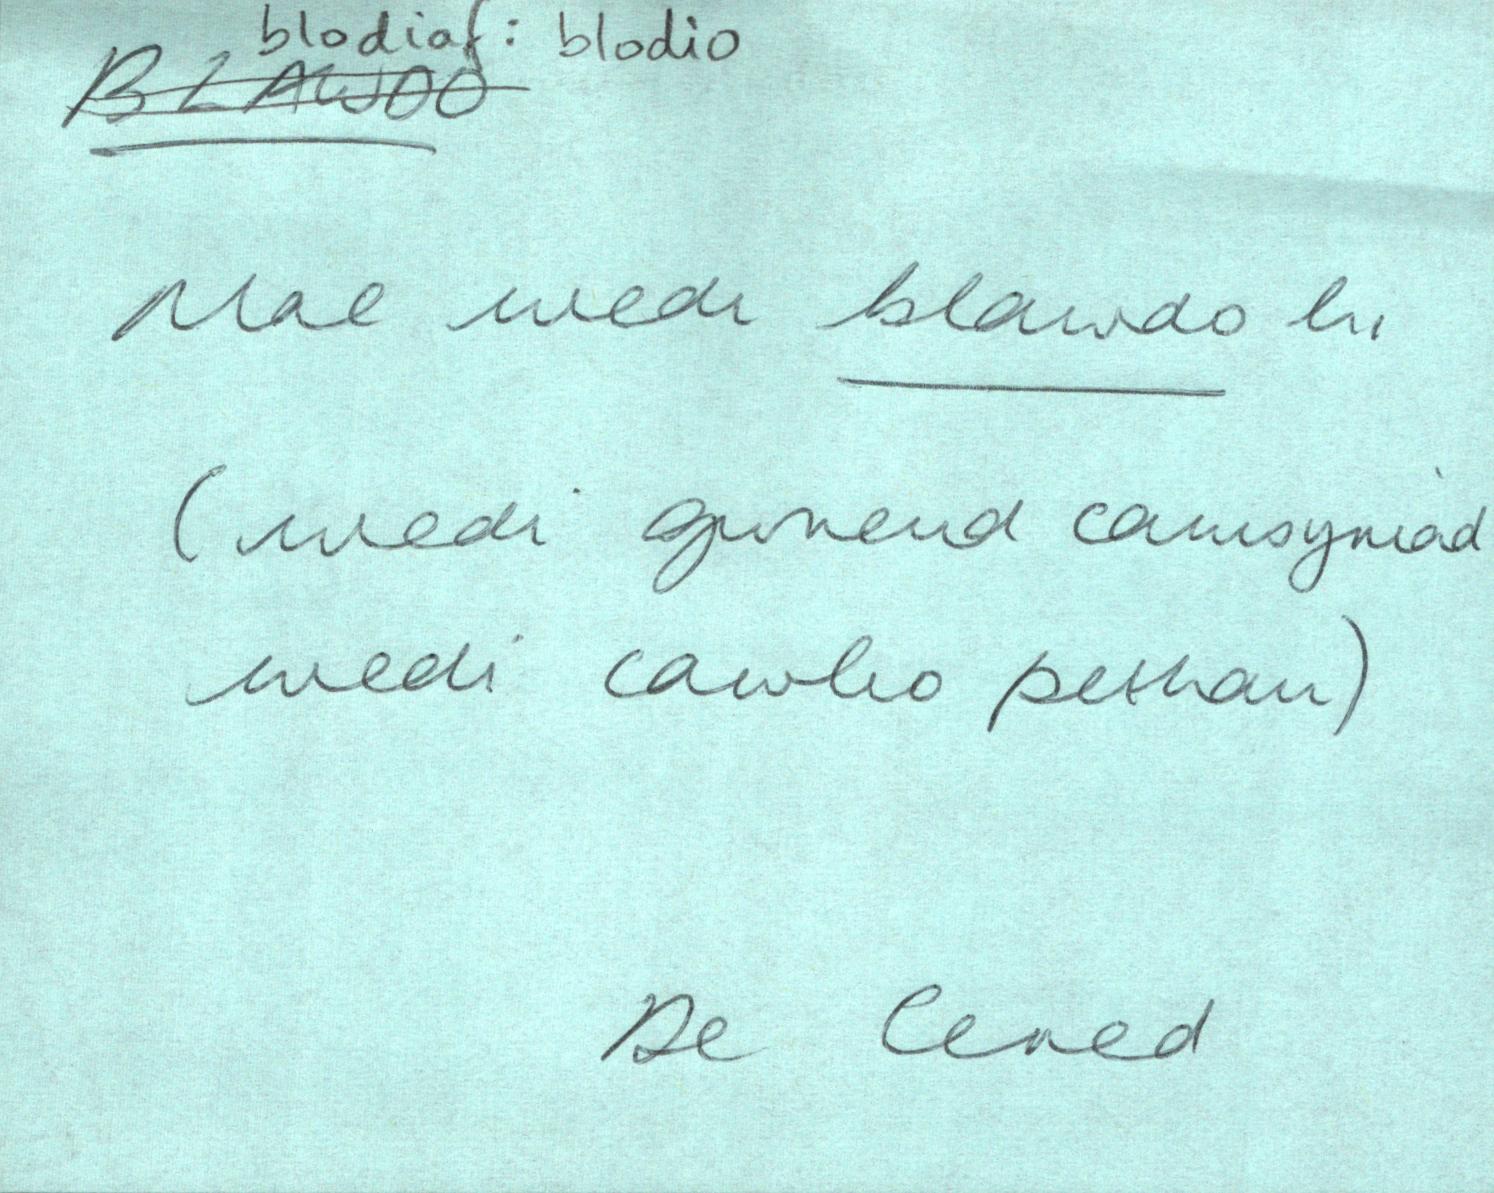 blodiaf: blodio
BLAWDO
Mae wedi blawdo hi
(wedi gwneud camsyniad
wedi cawlio pethau)
De Cered